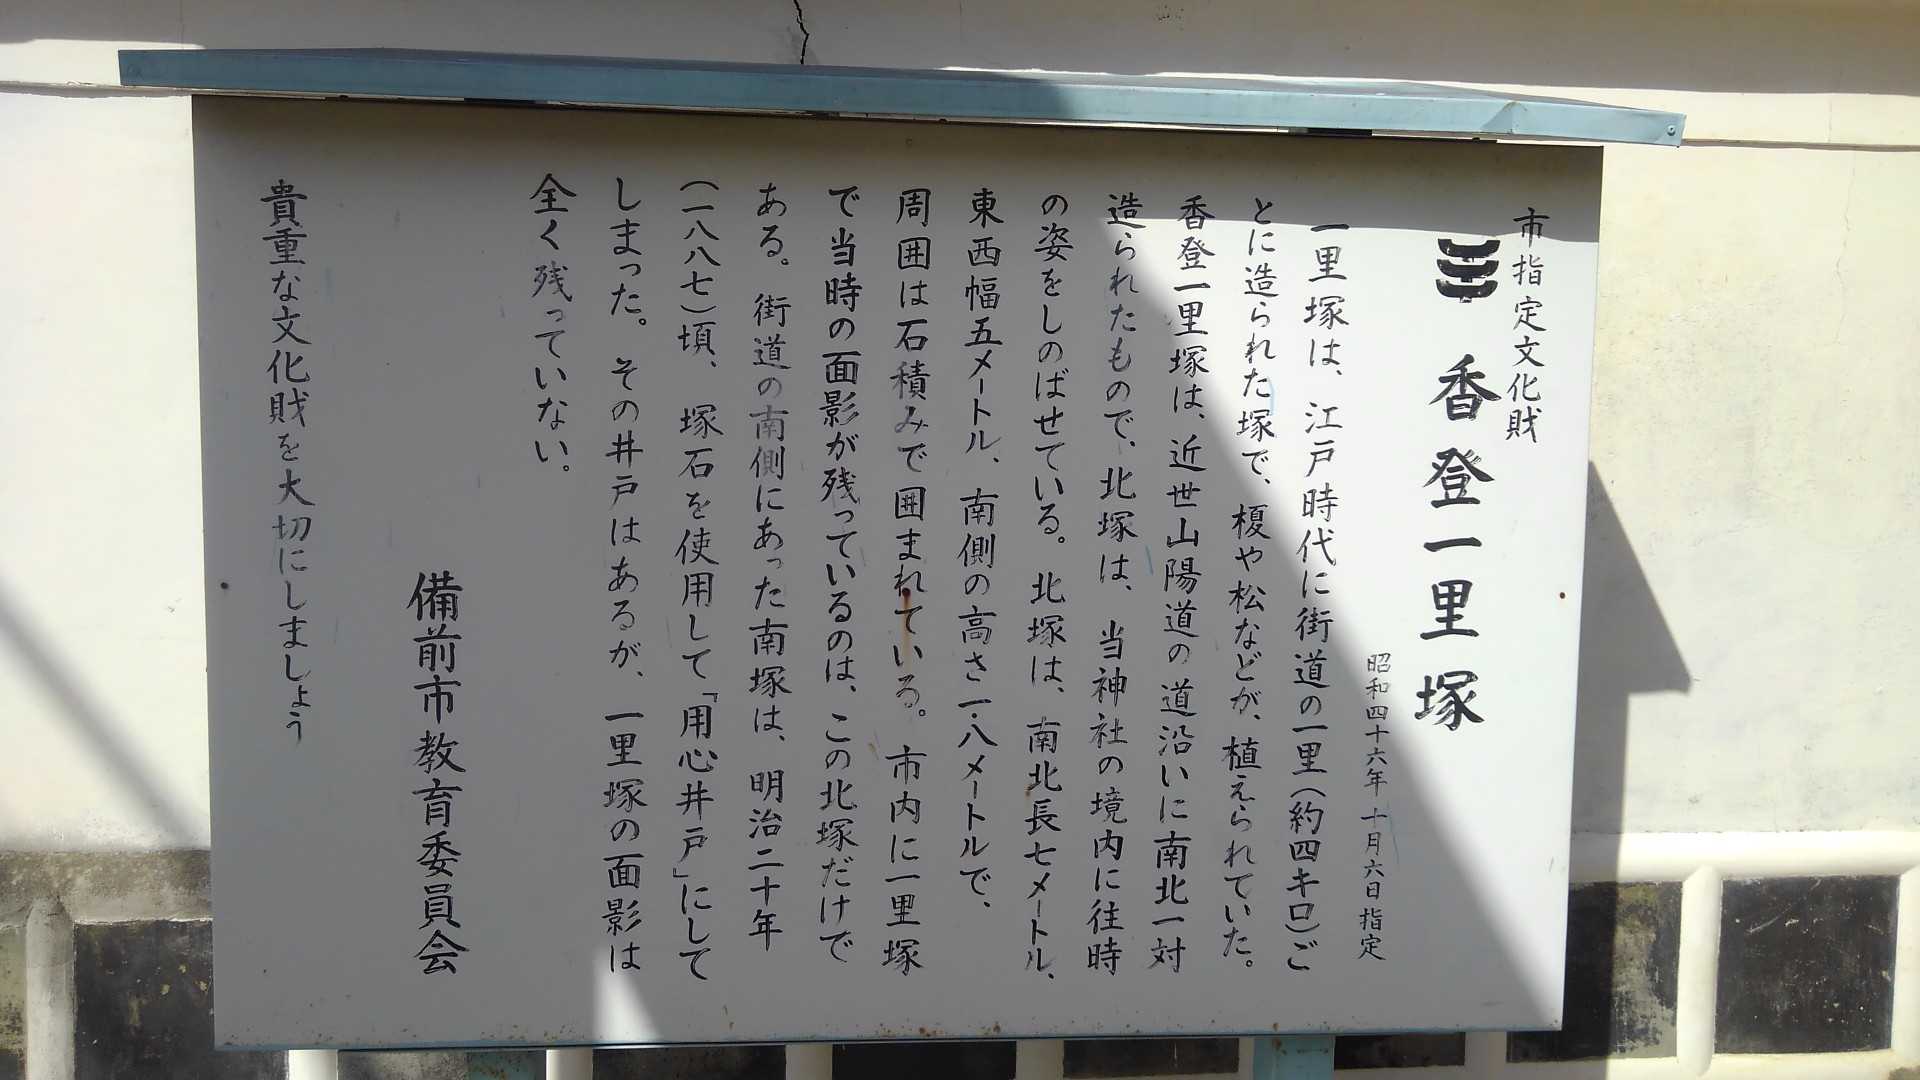 市指定文化財
香登一里塚
昭和四十六年十月六日指定
一里塚は、江戸時代に街道の一里(約四キロ)ご
とに造られた塚で、榎や松などが、植えられていた。
香登一里塚は、近世山陽道の道沿いに南北一対
造られたもので、北塚は、当神社の境内に往時
の姿をしのばせている。北塚は、南北長七メートル、
東西幅五メートル、南側の高さ一・八メートルで、
周囲は石積みで囲まれている。市内に一里塚
で当時の面影が残っているのは、この北塚だけで
ある。街道の南側にあった南塚は、明治二十年
(一八八七)頃、塚石を使用して「用心井戸」にして
しまった。その井戸はあるが、一里塚の面影は
全く残っていない。
備前市教育委員会
貴重な文化財を大切にしましょう